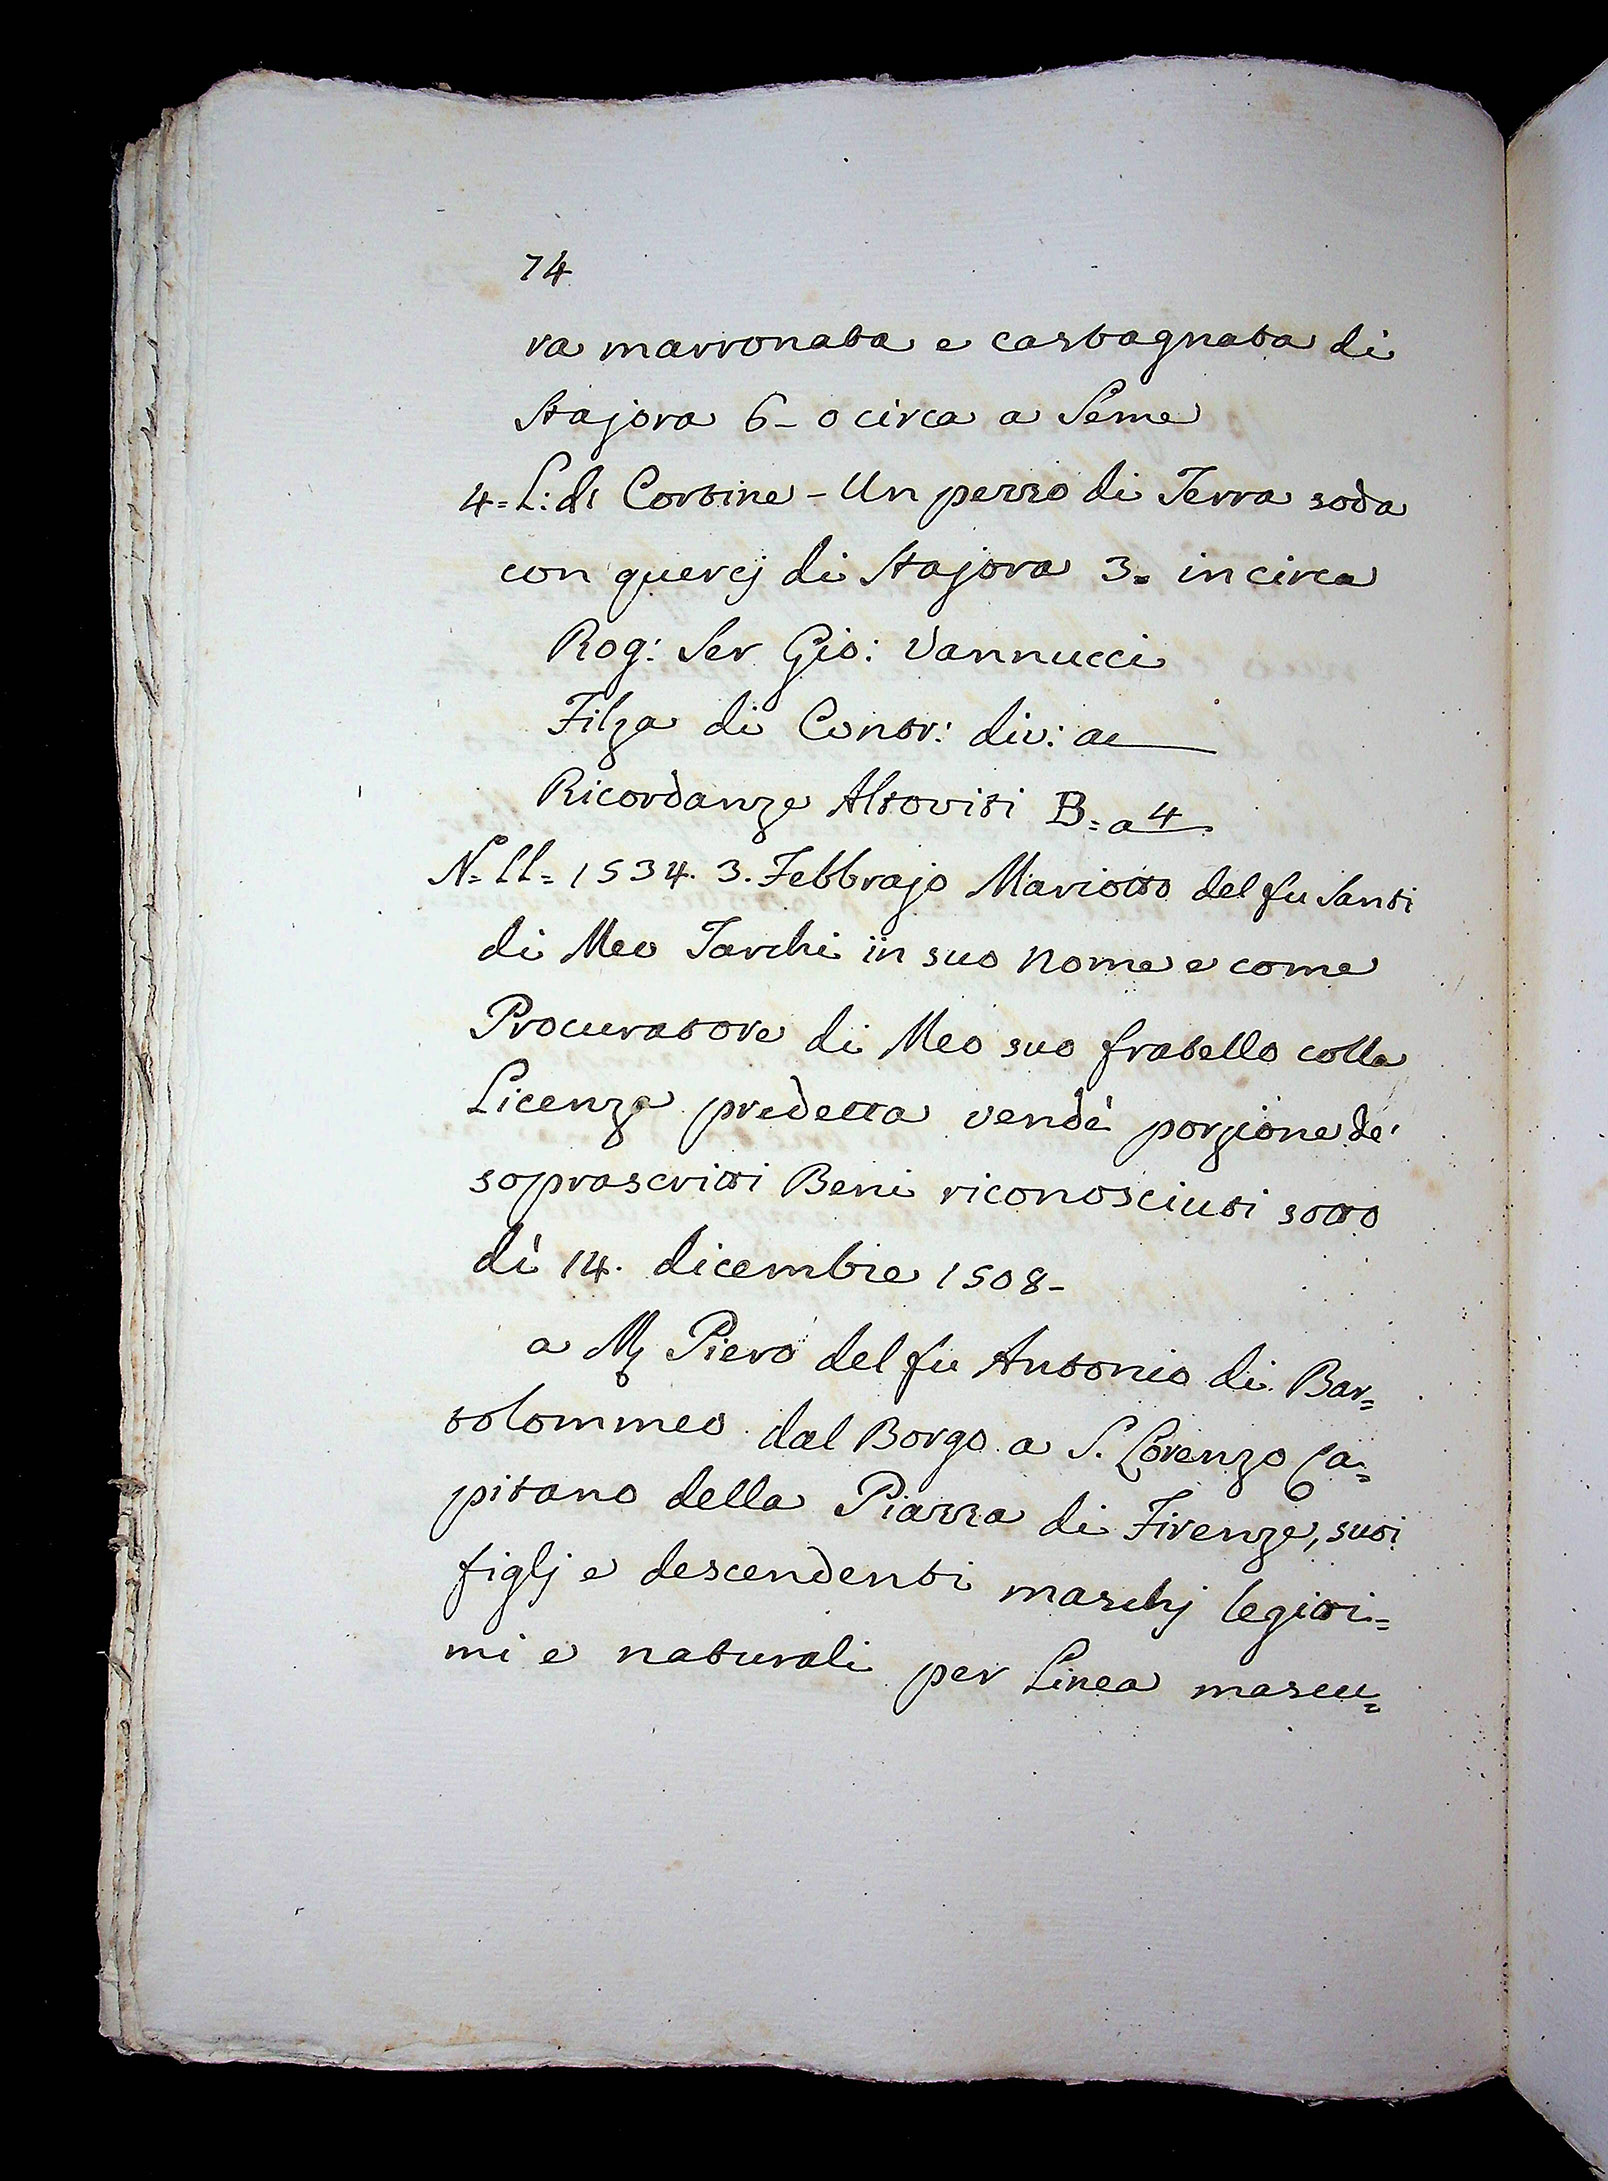 74
ra marronata e castagnata di
Stajora 6- o circa a Seme
4=L: di Cortine - Un pezzo di Terra soda
con quercj di Stajora 3. in circa
Rog: Ser Gio: Vannucci
Filza di Contr: div: a
Ricordanze Altoviti B= a 4
N=11= 1534. 3. Febbrajo Mariotto del fu Santi
di Meo Tarchi in suo nome e come
Procuratore di Meo suo fratello colla
Licenza predetta vendè porzione de'
soprascritti Beni riconosciuti sotto
dì 14. dicembre 1508-
a Mr Piero del fu Antonio di Bar=
tolommeo dal Borgo a S. Lorenzo Ca=
pitano della Piazza di Firenze, suoi
figlj e descendenti maschj legitti=
mi e naturali per Linea mascu=